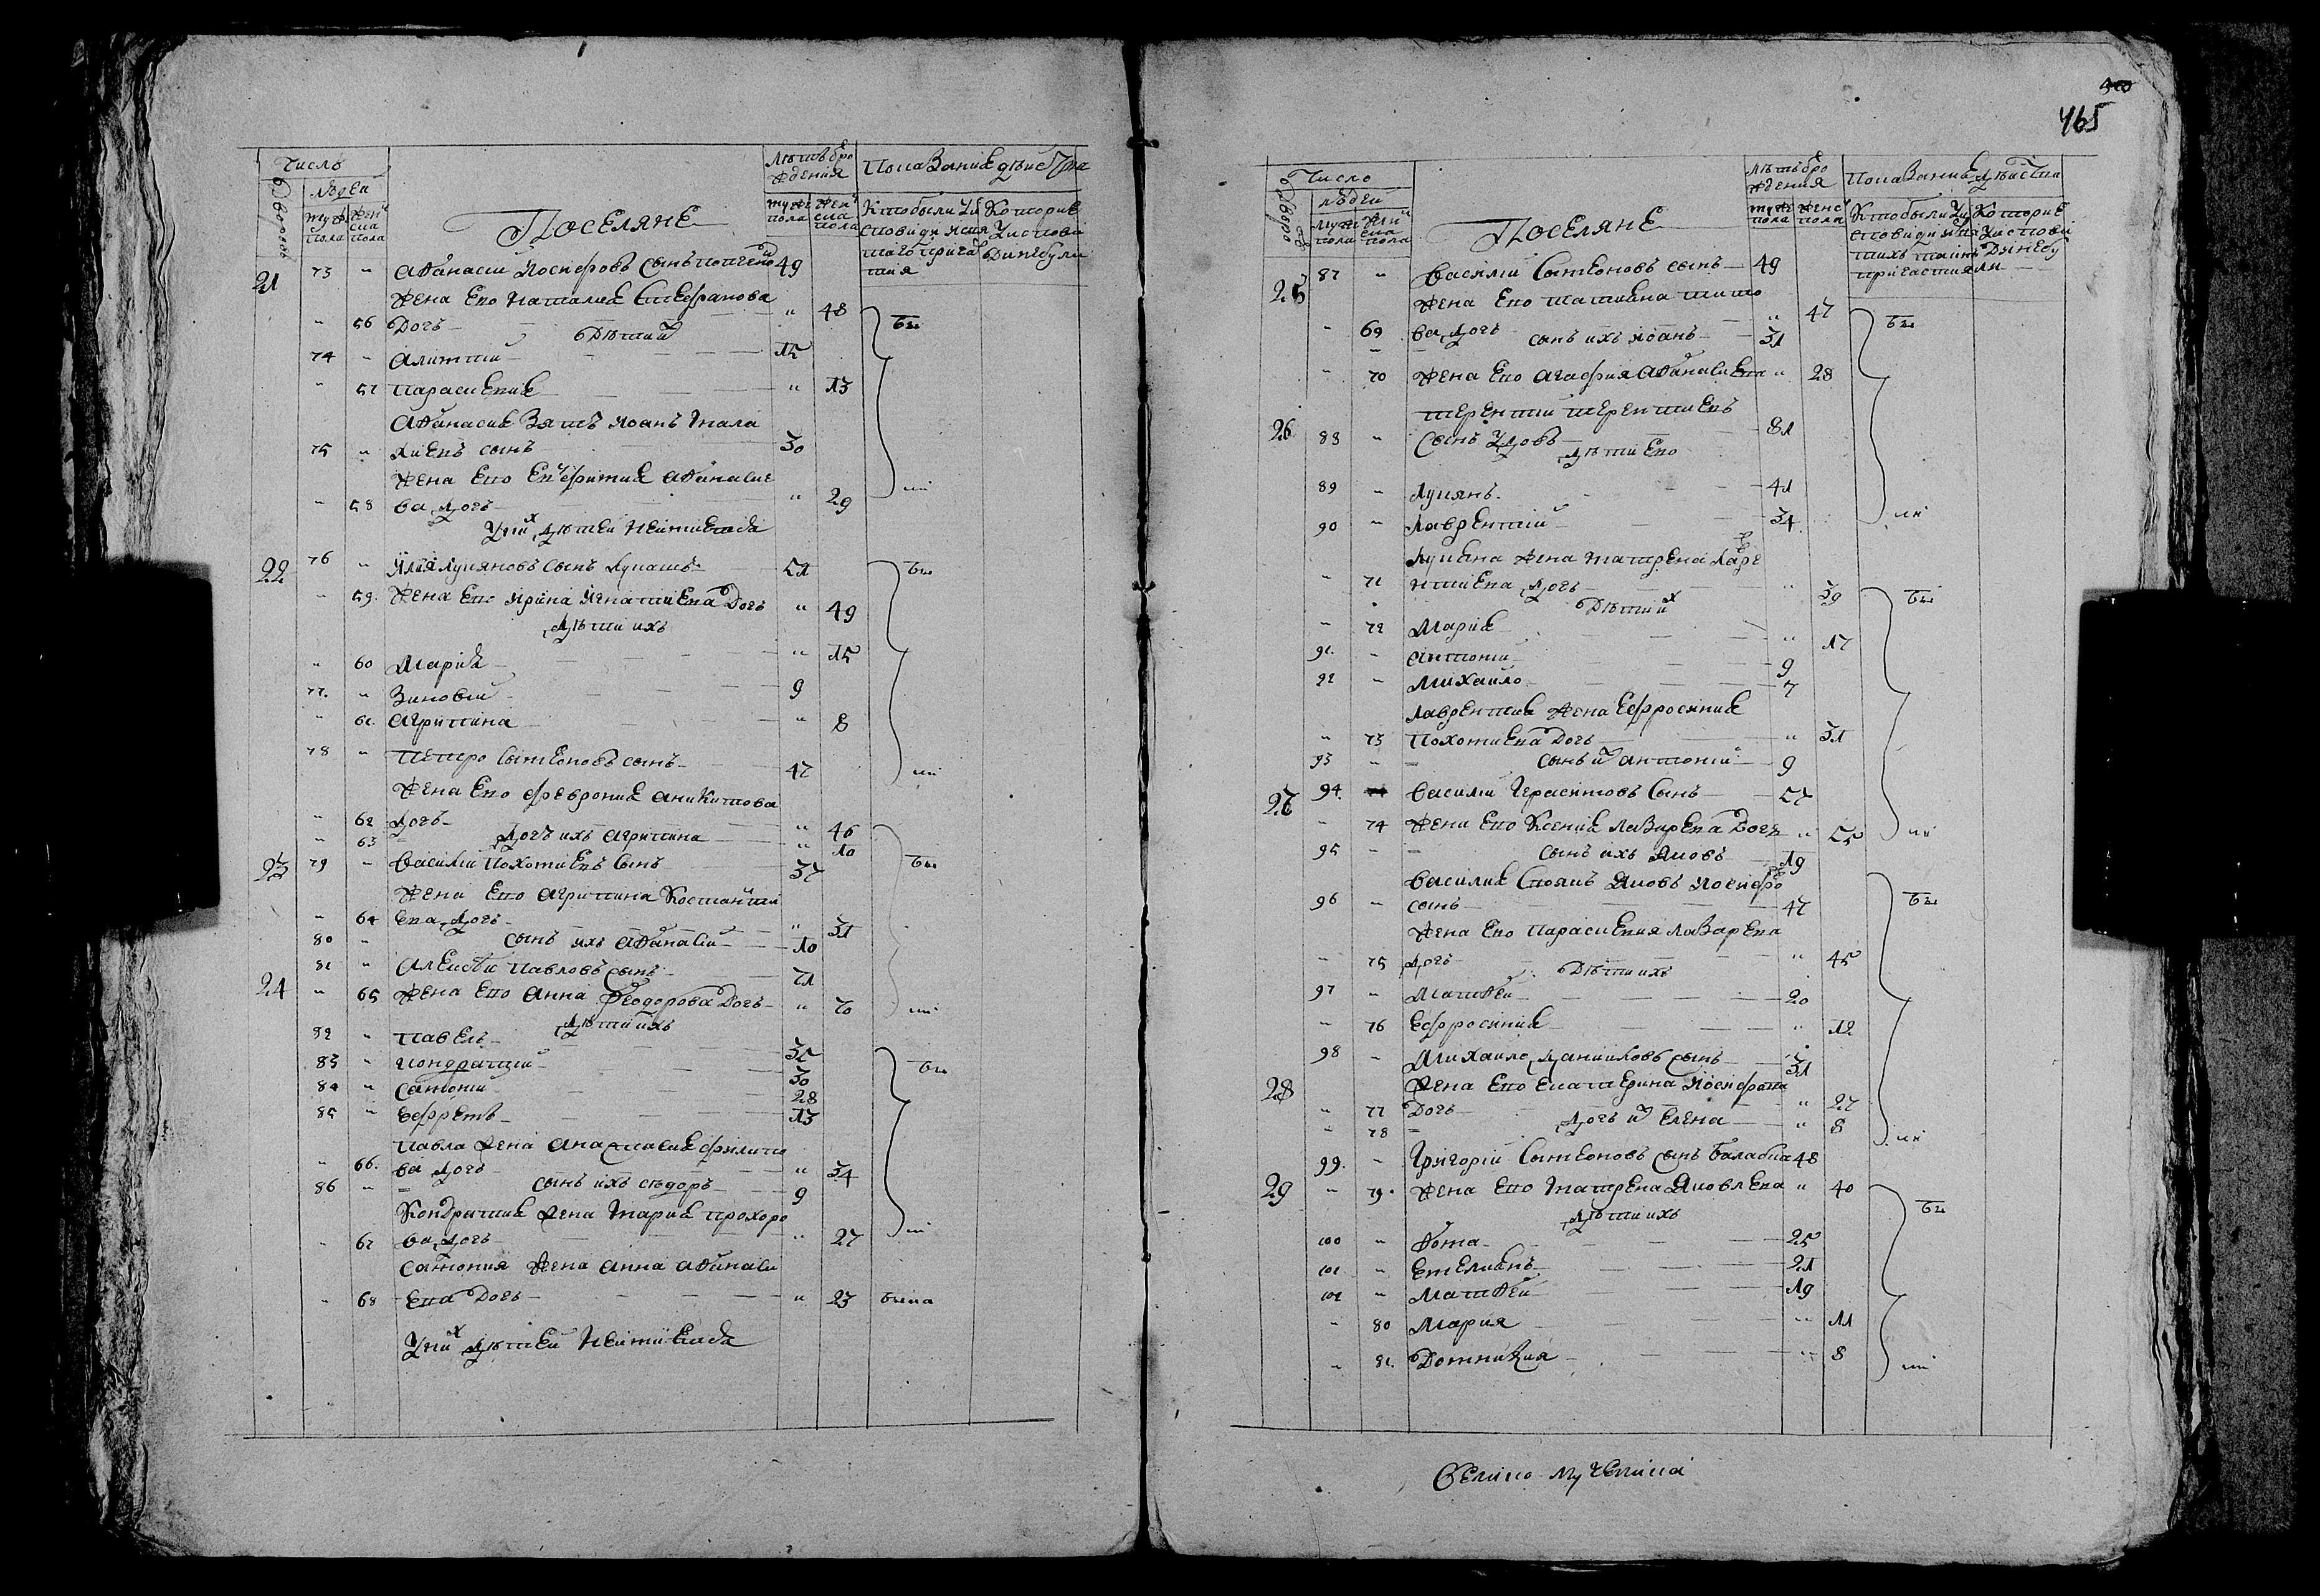 Число
дворовъ
людей
мужеска пола
женска пола
Поселяне
лѣтъ от рождения
мужеска пола
женска пола
Показание действа
Кто были у исповеди и святого причастия
Которие у исповеди не были
21 73 " Афанасий Иосифовъ сынъ 49
жена его Наталия Стефанова
" 56 дочь " 48 бы
дети их
74 " Алимпий 15
" 57 Параскевия " 13
Афанасия зять Иоанъ Мала
75 " хиевъ сынъ 30
жена его Евфимия Афанасие
" 58 ва дочь " 29 ли
У них детей неимеется
22 76 " Илия Лукяновъ сынъ Лупашъ 51 бы
" 59 жена его Ирина Игнатиева дочь " 49
дети ихъ
" 60 Мария " 15
77 " Зиновий 9
" 61 Агрипина " 8
78 " Петро Симеоновъ сынъ 47 ли
жена его Феврония Аникитова
" 62 дочь " 46
" 63 дочь ихъ Агрипина " 10
23 79 " Василий Похомиевъ сынъ 37 бы
жена его Агрипина Костанти
" 64 ева дочь " 31
80 " сынъ ихъ Афанасий 10
24 81 " Алексей Павловъ сынъ 71
" 65 жена его Анна Феодорова дочь " 70 ли
дети ихъ
82 " Павелъ 35
83 " Кондратий 30 бы
84 " Самоний 28
85 " Ефремъ 13
Павла жена Анастасия Филипо
" 66 ва дочь " 34
86 " = сынъ ихъ Сидоръ 9
Кондратия жена Мария Прохоро
" 67 ва дочь " 27 ли
Самония жена Анна Афанаси
" 68 ева дочь " 23 была
У них детей неимеется
465
Число
дворовъ
людей
мужеска пола
женска пола
Поселяне
лѣтъ от рождения
мужеска пола
женска пола
Показание действа
Кто были у исповеди и святихъ таинъ причастия
Которие у исповеди не были
25 87 " Василий Симеоновъ сынъ 49
жена его Татиана Тимо
" 69 ва дочь " 47 бы
сынъ ихъ Иоанъ 31
" 70 жена его Агафия Афанасиева " 28
Терентий Терентиевъ
26 88 " сынъ удовъ 81
дети его
89 " Лукянъ 41
90 " Лаврентий 34 ли
Лукяна жена Матрена Лавре
" 71 нтиева дочь " 39 бы
дети их
" 72 Мария " 17
91 " Антоний 9
92 " Михайло 7
Лаврентия жена Ефросиния
" 73 Похомиева дочь " 31
93 " = сынъ их Антоний 9
27 94 Василий Герасимовъ сынъ 57
" 74 жена его Ксения Лазарева дочь " 55 ли
95 " = сынъ ихъ Яковъ 19
Василия своякъ Яковъ Иосифовъ
96 " сынъ 47 бы
жена его Параскевия Лазарева
" 75 дочь " 45
дети ихъ
97 " Матфей 20
" 76 Ефросиния " 12
98 " Михайло Данииловъ сынъ 31
28 жена его Екатерина Иосифова
" 77 дочь " 27
" 78 = дочь их Елена " 8 ли
99 " Григорий Симеоновъ сынъ Балабка 48
29 " 79 жена его Матрена Яковлева " 40 бы
дети ихъ
100 " Фома 25
101 " Емелиянъ 21
102 " Матфей 19
" 80 Мария " 11
" 81 Домникия " 8 ли
Велико мученика